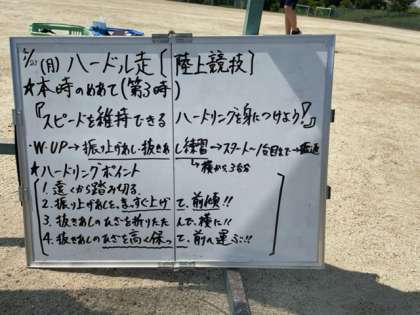 5/21(月) ハードル走〔陸上競技〕
★本時のめあて(第3時)
『スピードを維持できるハードリングを身につけよう!』
・W-UP→振り上げあし・抜きあし練習→スタート〜1台目まで→
↳横から3台
★ハードリングポイント
1. 遠くから踏み切る。
2. 振り上げあしを、まっすぐ上げて、前傾!!
3. 抜きあしのひざを折りたたんで、横に!!
4. 抜きあしのひざを高く保って、前へ運ぶ!!